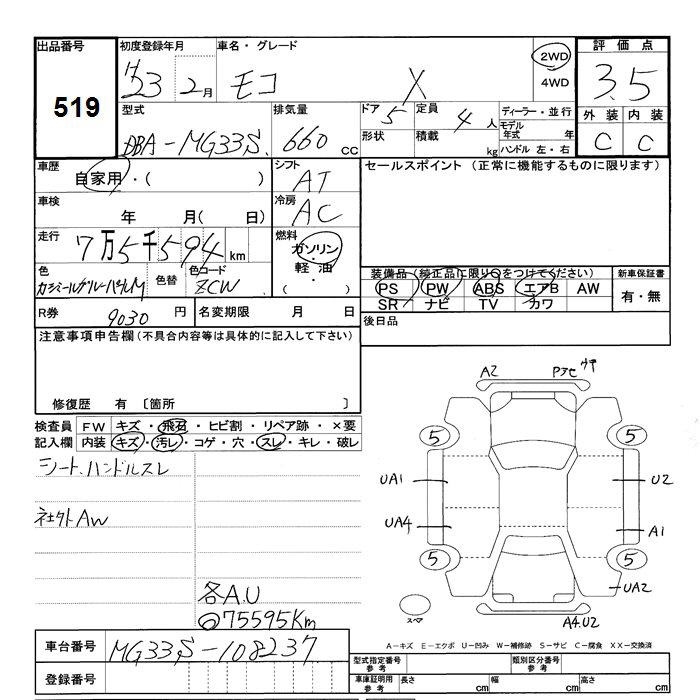 出品番号 初度登録年月 車名・グレード 評価点
519 H23 2月 モコ X 2WD 4WD 3.5
型式 排気量 ドア 5 定員 4人 ディーラー・並行 外装 内装
DBA-MG33S 660cc 形状 積載 kg モデル年式 年 ハンドル 左・右 C C
車歴 シフト セールスポイント (正常に機能するものに限ります)
自家用・( ) AT
車検 冷房
年 月( 日) AC
走行 燃料
7万5千594km ガソリン
色 色替 色コード 軽油 装備品(純正品に限り○をつけてください) 新車保証書
カシミールグルーパールM ZCW ・( ) PS PW ABS エアB AW 有・無
SR ナビ TV カワ
R券 9030円 名変期限 月 日 後日品
注意事項申告欄(不具合内容等は具体的に記入して下さい)
修復歴 有 〔箇所 〕
検査員 FW キズ・飛石・ヒビ割・リペア跡・×要
記入欄 内装 キズ・汚レ・コゲ・穴・スレ・キレ・破レ
シート、ハンドルスレ
社外AW
各A.U
75595Km
A2
5 5
UA1 U2
UA4 A1
5 5
UA2
スペア A4.U2
A-キズ E-エクボ U-凹み W-補修跡 S-サビ C-腐食 XX-交換済
車台番号 MG33S-108237 型式指定番号 参考 類別区分番号 参考
登録番号 車庫証明用 参考 長さ cm 幅 cm 高さ cm